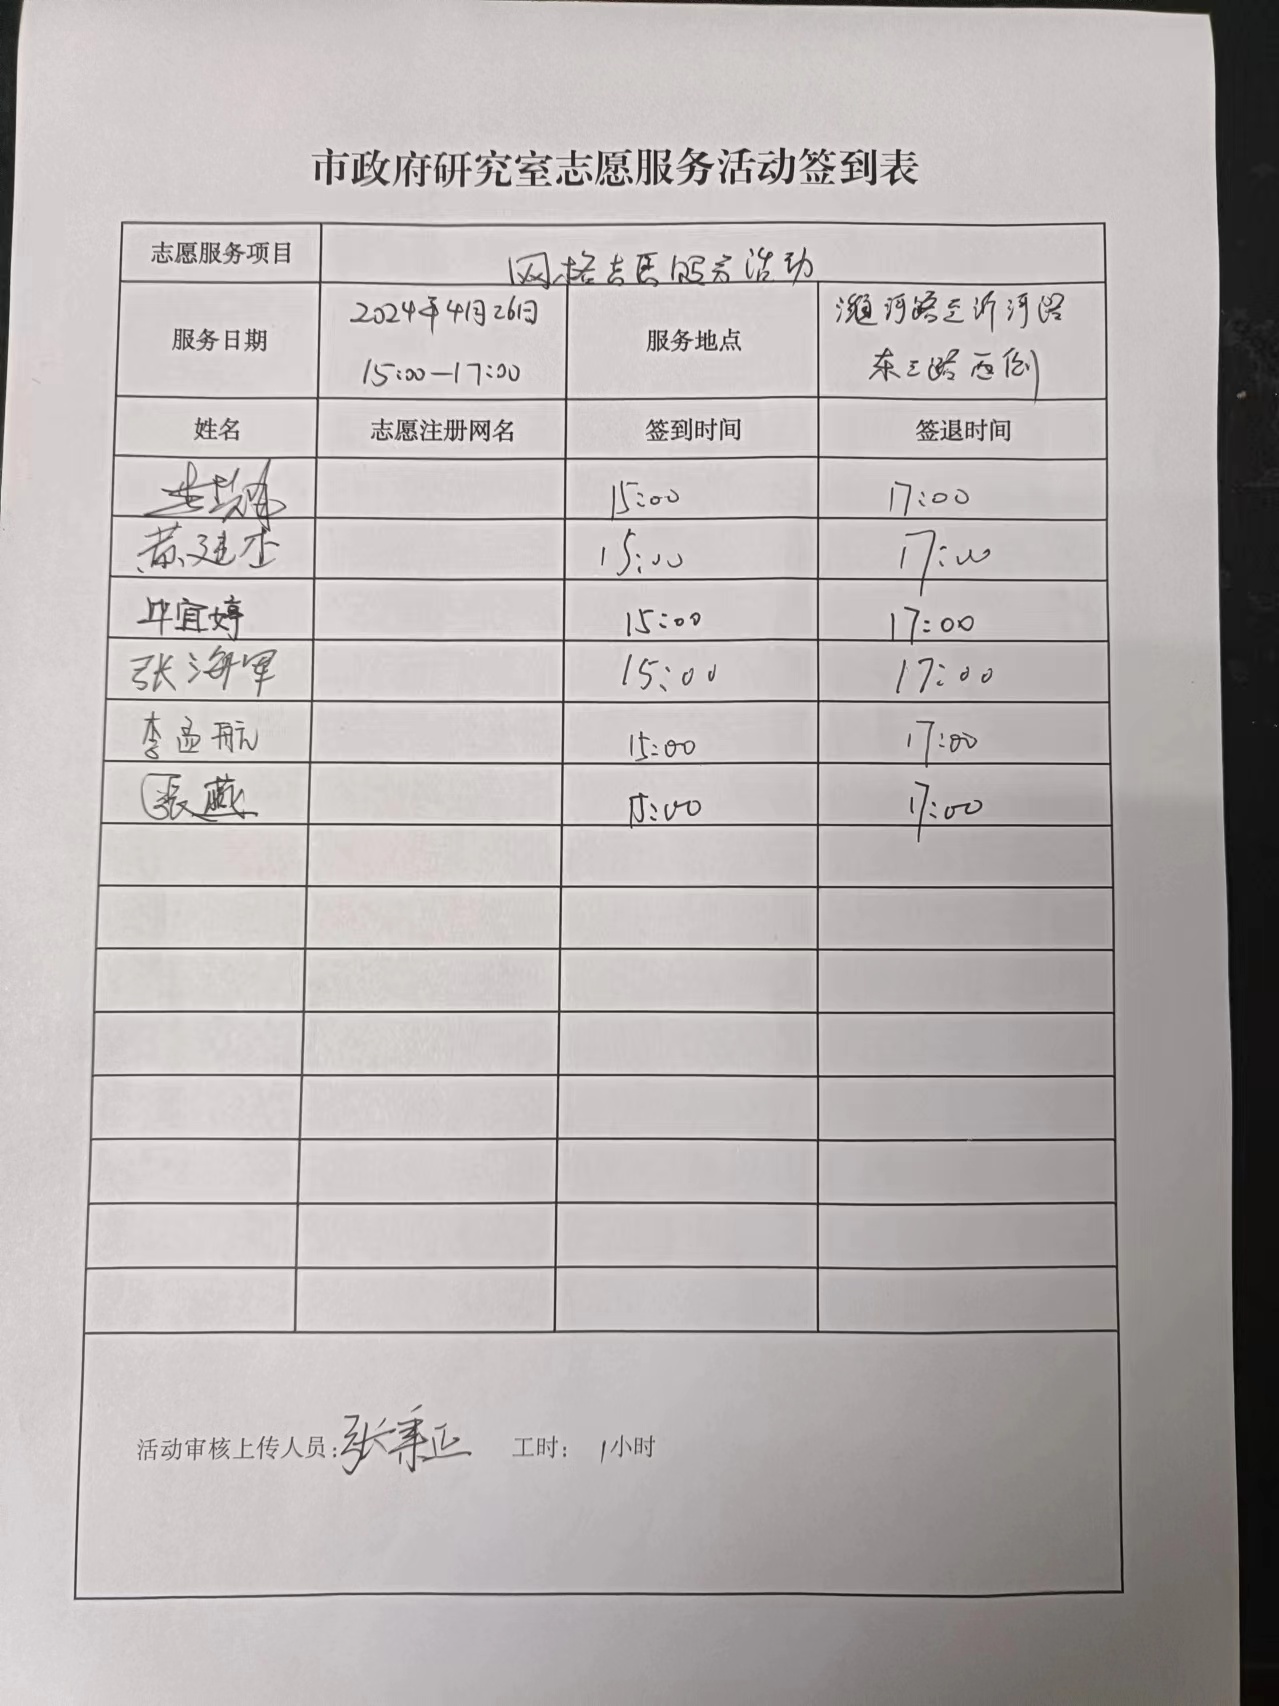 市政府研究室志愿服务活动签到表
志愿服务项目 网格志愿服务活动
服务日期 2024年4月26日 15:00—17:00 服务地点 河路至沂河路 东三路西侧
姓名 志愿注册网名 签到时间 签退时间
15:00 17:00
黄建杰 15:00 17:00
毕宜婷 15:00 17:00
张海军 15:00 17:00
李孟航 15:00 17:00
張燕 15:00 17:00
活动审核上传人员:张秉正 工时: 1小时